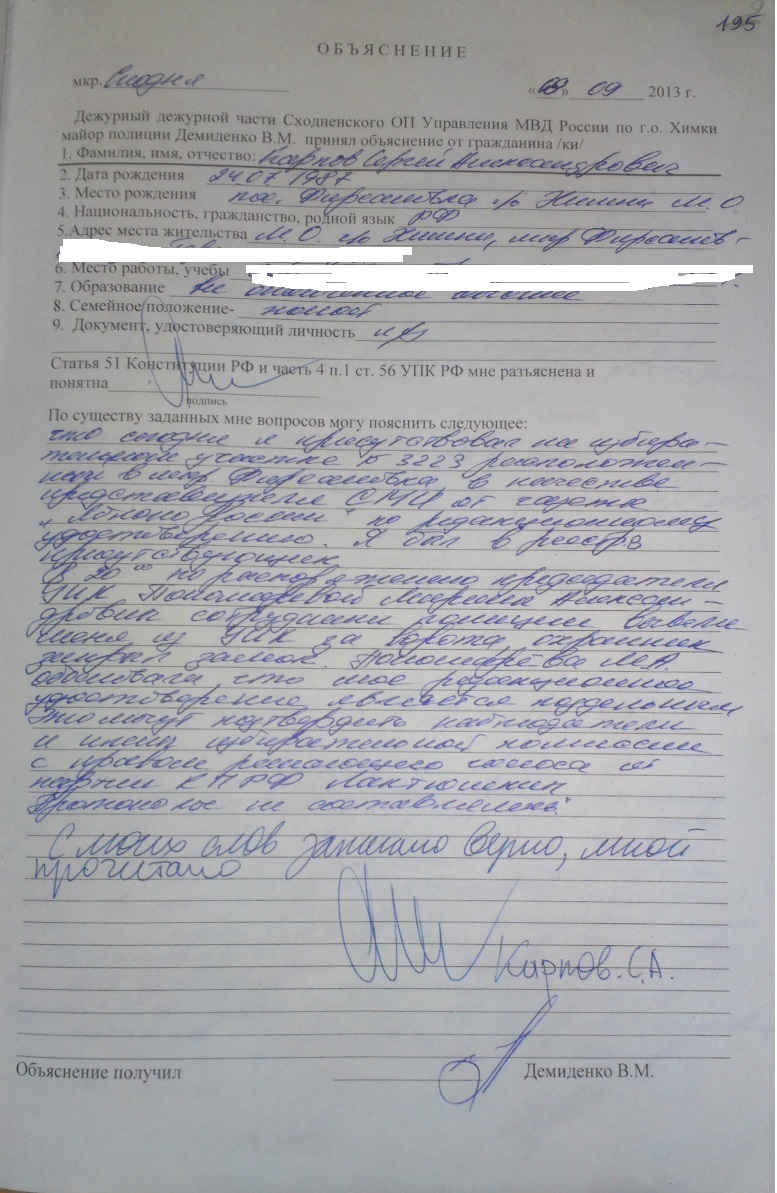 195
ОБЪЯСНЕНИЕ
мкр. Сходня «08» 09 2013 г.
Дежурный дежурной части Сходненского ОП Управления МВД России по г.о. Химки
майор полиции Демиденко В.М. принял объяснение от гражданина /ки/
1. Фамилия, имя, отчество: Карпов Сергей Александрович
2. Дата рождения 24.07.1987
3. Место рождения пос. Фирсановка г/о Химки М.О.
4. Национальность, гражданство, родной язык РФ
5.Адрес места жительства М.О. г/о Химки, мкр Фирсанов-
6. Место работы, учебы
7. Образование не оконченное высшее
8. Семейное положение- холост
9. Документ, удостоверяющий личность
Статья 51 Конституции РФ и часть 4 п.1 ст. 56 УПК РФ мне разъяснена и
понятна
подпись
По существу заданных мне вопросов могу пояснить следующее:
что сегодня я присутствовал на избира-
тельном участке № 3223 расположен-
ном в мкр. Фирсановка в качестве
представителя СМИ от газеты
"Яблоко России" по редакционному
удостоверению. Я был в реестре
присутствующих
В 20 00 по распоряжению председателя
УИК Пономаревой Марины Алексан-
дровны сотрудники полиции вывели
меня из УИК за ворота охранник
закрыл замок. Пономарёва М.А.
объявила, что мое редакционное
удостоверение является поддельным
Это могут подтвердить наблюдатели
и члены избирательной комиссии
с правом решающего голоса от
партии КПРФ
Протокол не составлялся.
С моих слов записано верно, мной
прочитано
Карпов. С.А.
Объяснение получил Демиденко В.М.